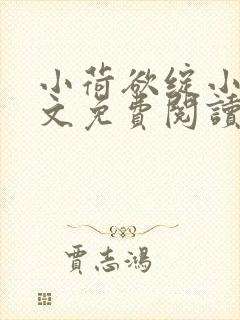 小荷欲绽小
文免費閱讀
賈志鴻